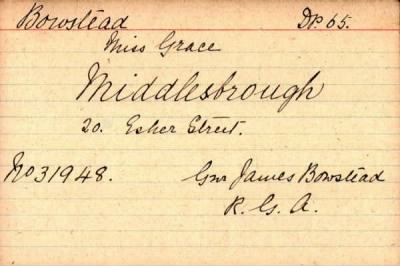 Bowstead DP. 65.
Miss Grace
Middlesbrough
20. Esher Street.
No 31948. Gnr James Bowstead
R. G. A.